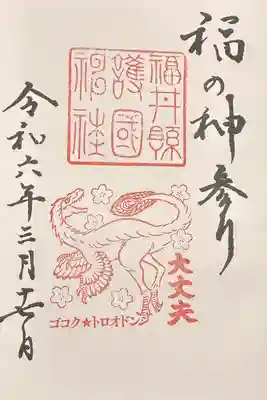 福の神参り
福井縣
護國
神社
大丈夫
ゴコク★トロオドン
令和六年三月十七日